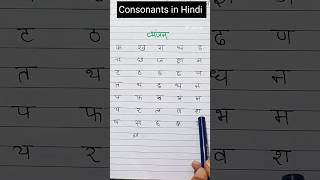 Consonants in Hindi
व्यंजन
क ख ग घ ङ
च छ ज झ ञ
ट ठ ड ढ ण
त थ द ध न
प फ ब भ म
य र ल व श
ष स ह